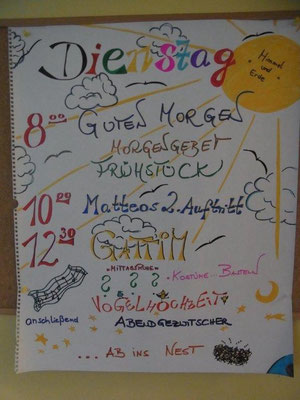 Dienstag
Himmel
und
Erde
8 00 GUTEN MORGEN
MORGENGEBET
FRÜHSTÜCK
10 00 Matteos 2. Auftritt
12 30 GATTIM
"MITTAGSRUHE"
? ? ? - KOSTÜME - BASTELN
anschließend VOGELHOCHZEIT
ABENDGEZWITSCHER
... AB INS NEST